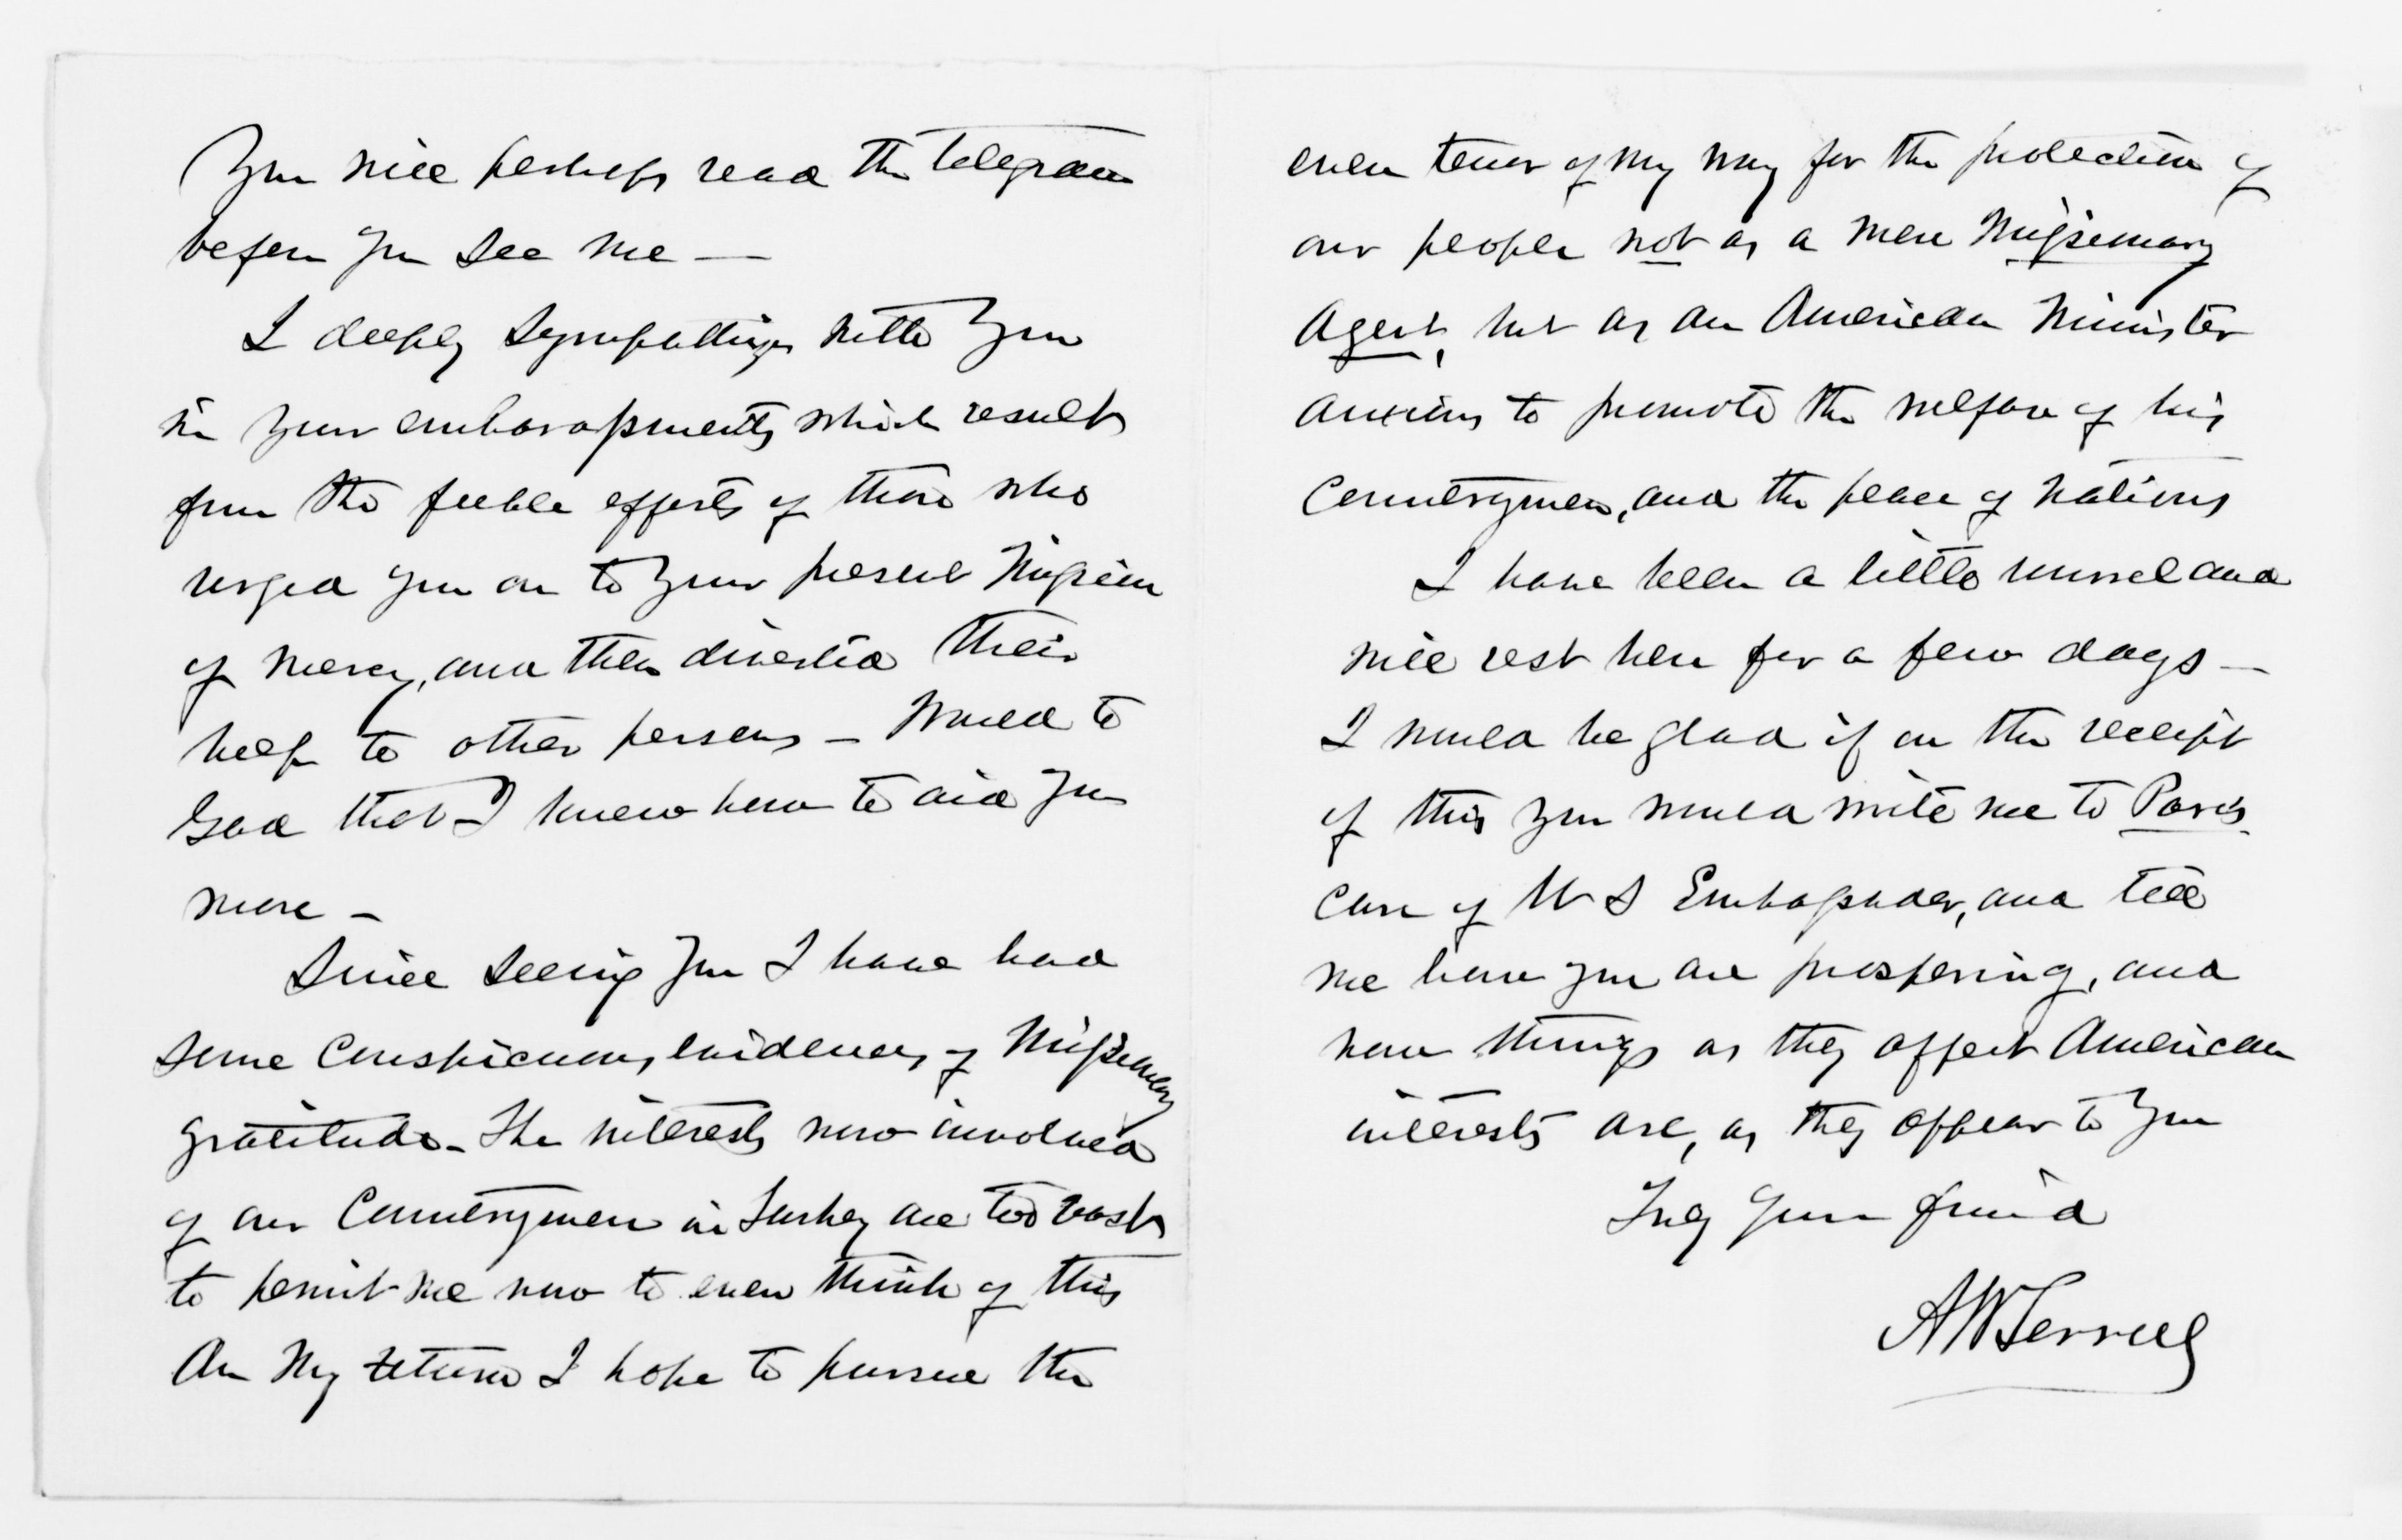 You will perhaps read the telegram
before you see me —
I deeply sympathize with you
in your embarassments which results
from the feeble efforts of those who
urged you on to your present Mission
of mercy, and then diverted their
help to other persons — Would to
God that I knew how to aid you
more —
Since seeing you I have had
some conspicuous evidences of Missionary
gratitude — The interests now involved
of our Countrymen in Turkey are too vast
to permit me now to even think of this
On my return I hope to pursue the
even tenor of my way for the protection of
our people not as a mere Missionary
Agent, but as an American Minister
anxious to promote the welfare of his
Countrymen, and the peace of Nations
I have been a little unwel and
will rest here for a few days —
I would be glad if on the receipt
of this you would write me to Paris
care of U S Embassador, and tell
me how you are prospering, and
how things as they affect American
interests are, as they appear to you
Truly your friend
A W Terrell